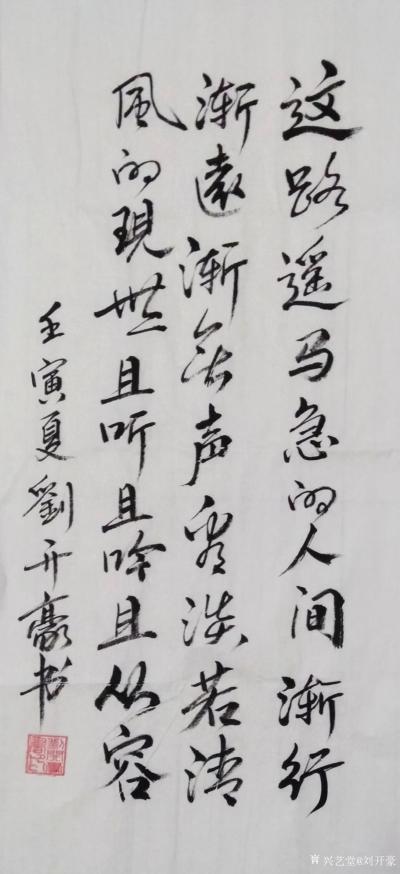 这路遥马急的人间渐行
渐遠渐无声看淡若清
風的現世且听且吟且从容
壬寅夏劉开豪书
兴艺堂@刘开豪